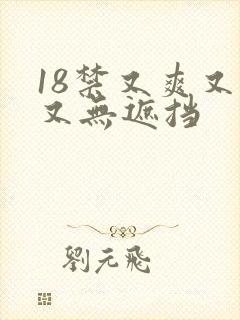 18禁又爽又
又無遮挡
劉元飛